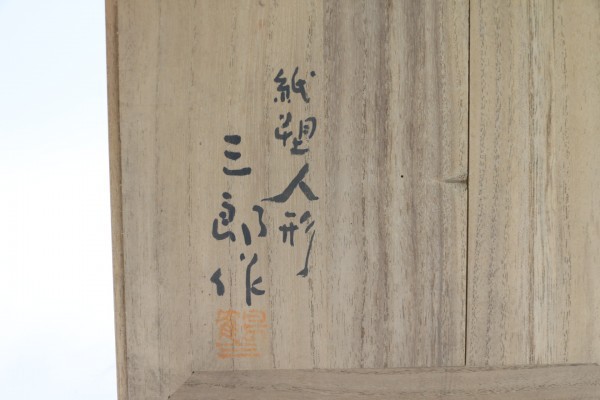 紙塑人形
三郎作